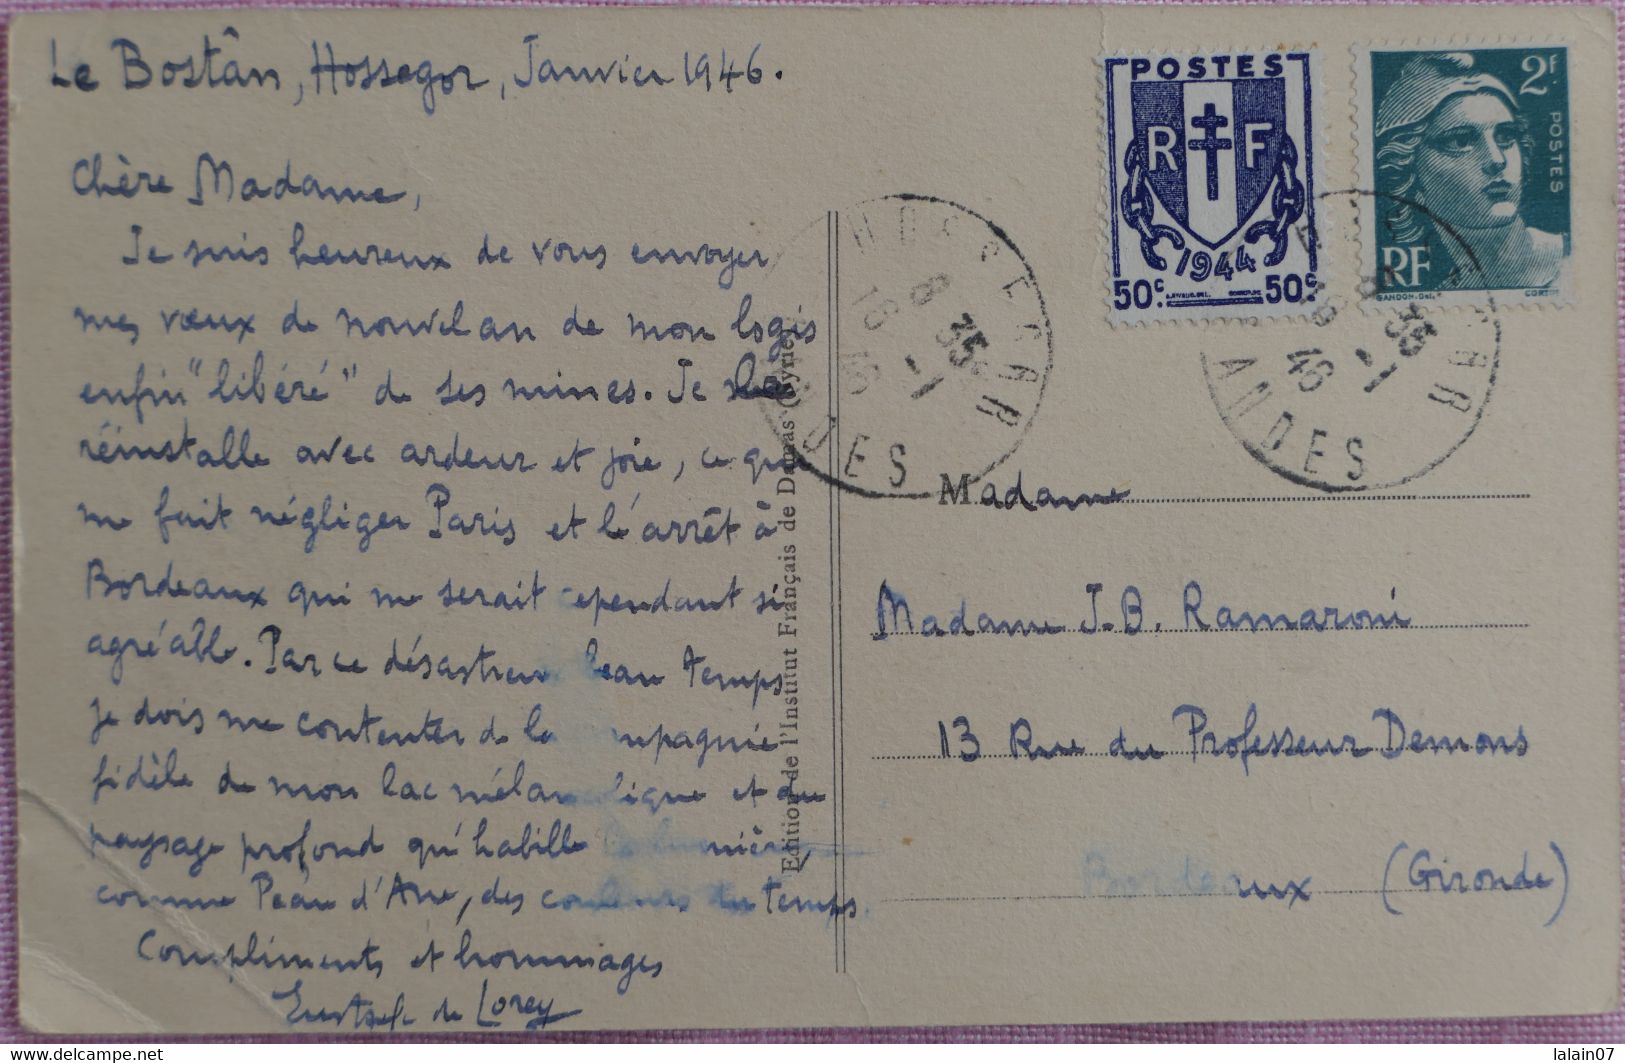 Le Bostân, Hossegor, Janvier 1946.
Chère Madame,
Je suis heureux de vous envoyer
mes vœux de nouvel an de mon logis
enfin "libéré" de ses mines. Je me
réinstalle avec ardeur et joie, ce qui
me fait négliger Paris et l'arrêt à
Bordeaux qui me serait cependant si
agréable. Par ce désastreux beau temps
je dois me contenter de la compagnie
fidèle de mon lac mélancolique et du
paysage profond qu'habille la lumière,
comme Peau d'Ane, des couleurs du temps.
Compliments et hommages
Eustache de Lorey
Edition de l'Institut Français de Damas (Syrie)
POSTES
R F
1944
50c. 50c.
2F
POSTES
RF
GANDON. Del.
HOSSEGOR
8 35
18 -1
46
LANDES
HOSSEGOR
8 35
18 -1
46
LANDES
Madame
Madame J.B. Ramaroni
13 Rue du Professeur Demons
Bordeaux (Gironde)
lalain07
www.delcampe.net